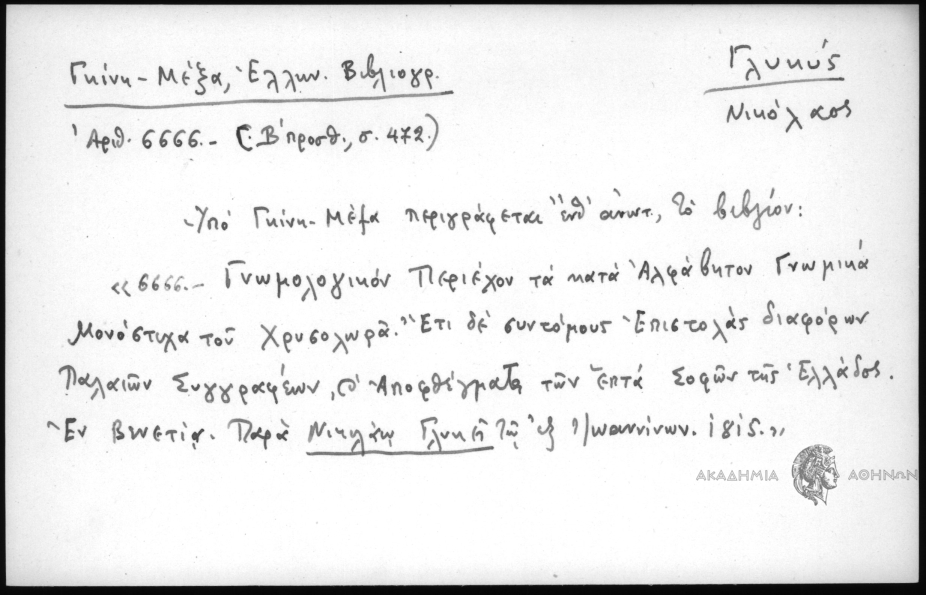 Γκίνη - Μέξα, Ἑλλην. Βιβλιογρ.
Γλυκύς
Νικόλαος
Ἀριθ. 6666.- (Β' προσθ., σ. 472.)
-Ὑπό Γκίνη - Μέξα περιγράφεται ἔνθ' ἀνωτ., τό βιβλίον:
«6666.- Γνωμολογικόν Περιέχον τά κατά Ἀλφάβητον Γνωμικά
Μονόστιχα τοῦ Χρυσολωρᾶ. Ἔτι δέ συντόμους Ἐπιστολάς διαφόρων
Παλαιῶν Συγγραφέων, Ἀποφθέγματα τῶν Ἑπτά Σοφῶν τῆς Ἑλλάδος.
Ἐν Βενετίᾳ. Παρά Νικολάῳ Γλυκεῖ τῷ ἐξ Ἰωαννίνων.
ΑΚΑΔΗΜΙΑ ΑΘΗΝΩΝ